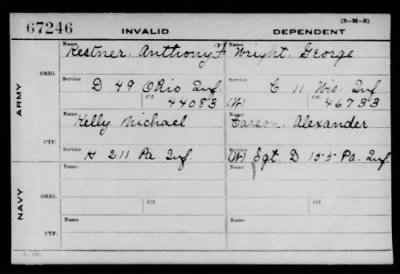 (3-H-3)
67246 INVALID DEPENDENT
ARMY
ORIG.
Name Kestner, Anthony F.
Name Wright, George
Service D 49 Ohio Inf
Service C 11 Wis. Inf
Ctf. 44083
(W) Ctf. 46733
CTF.
Name Kelly Michael
Name Carson, Alexander
Service H 211 Pa Inf.
Service (W) Sgt. D 155 Pa. Inf.
NAVY
ORIG.
Name
Name
Ctf.
Ctf.
CTF.
Name
Name